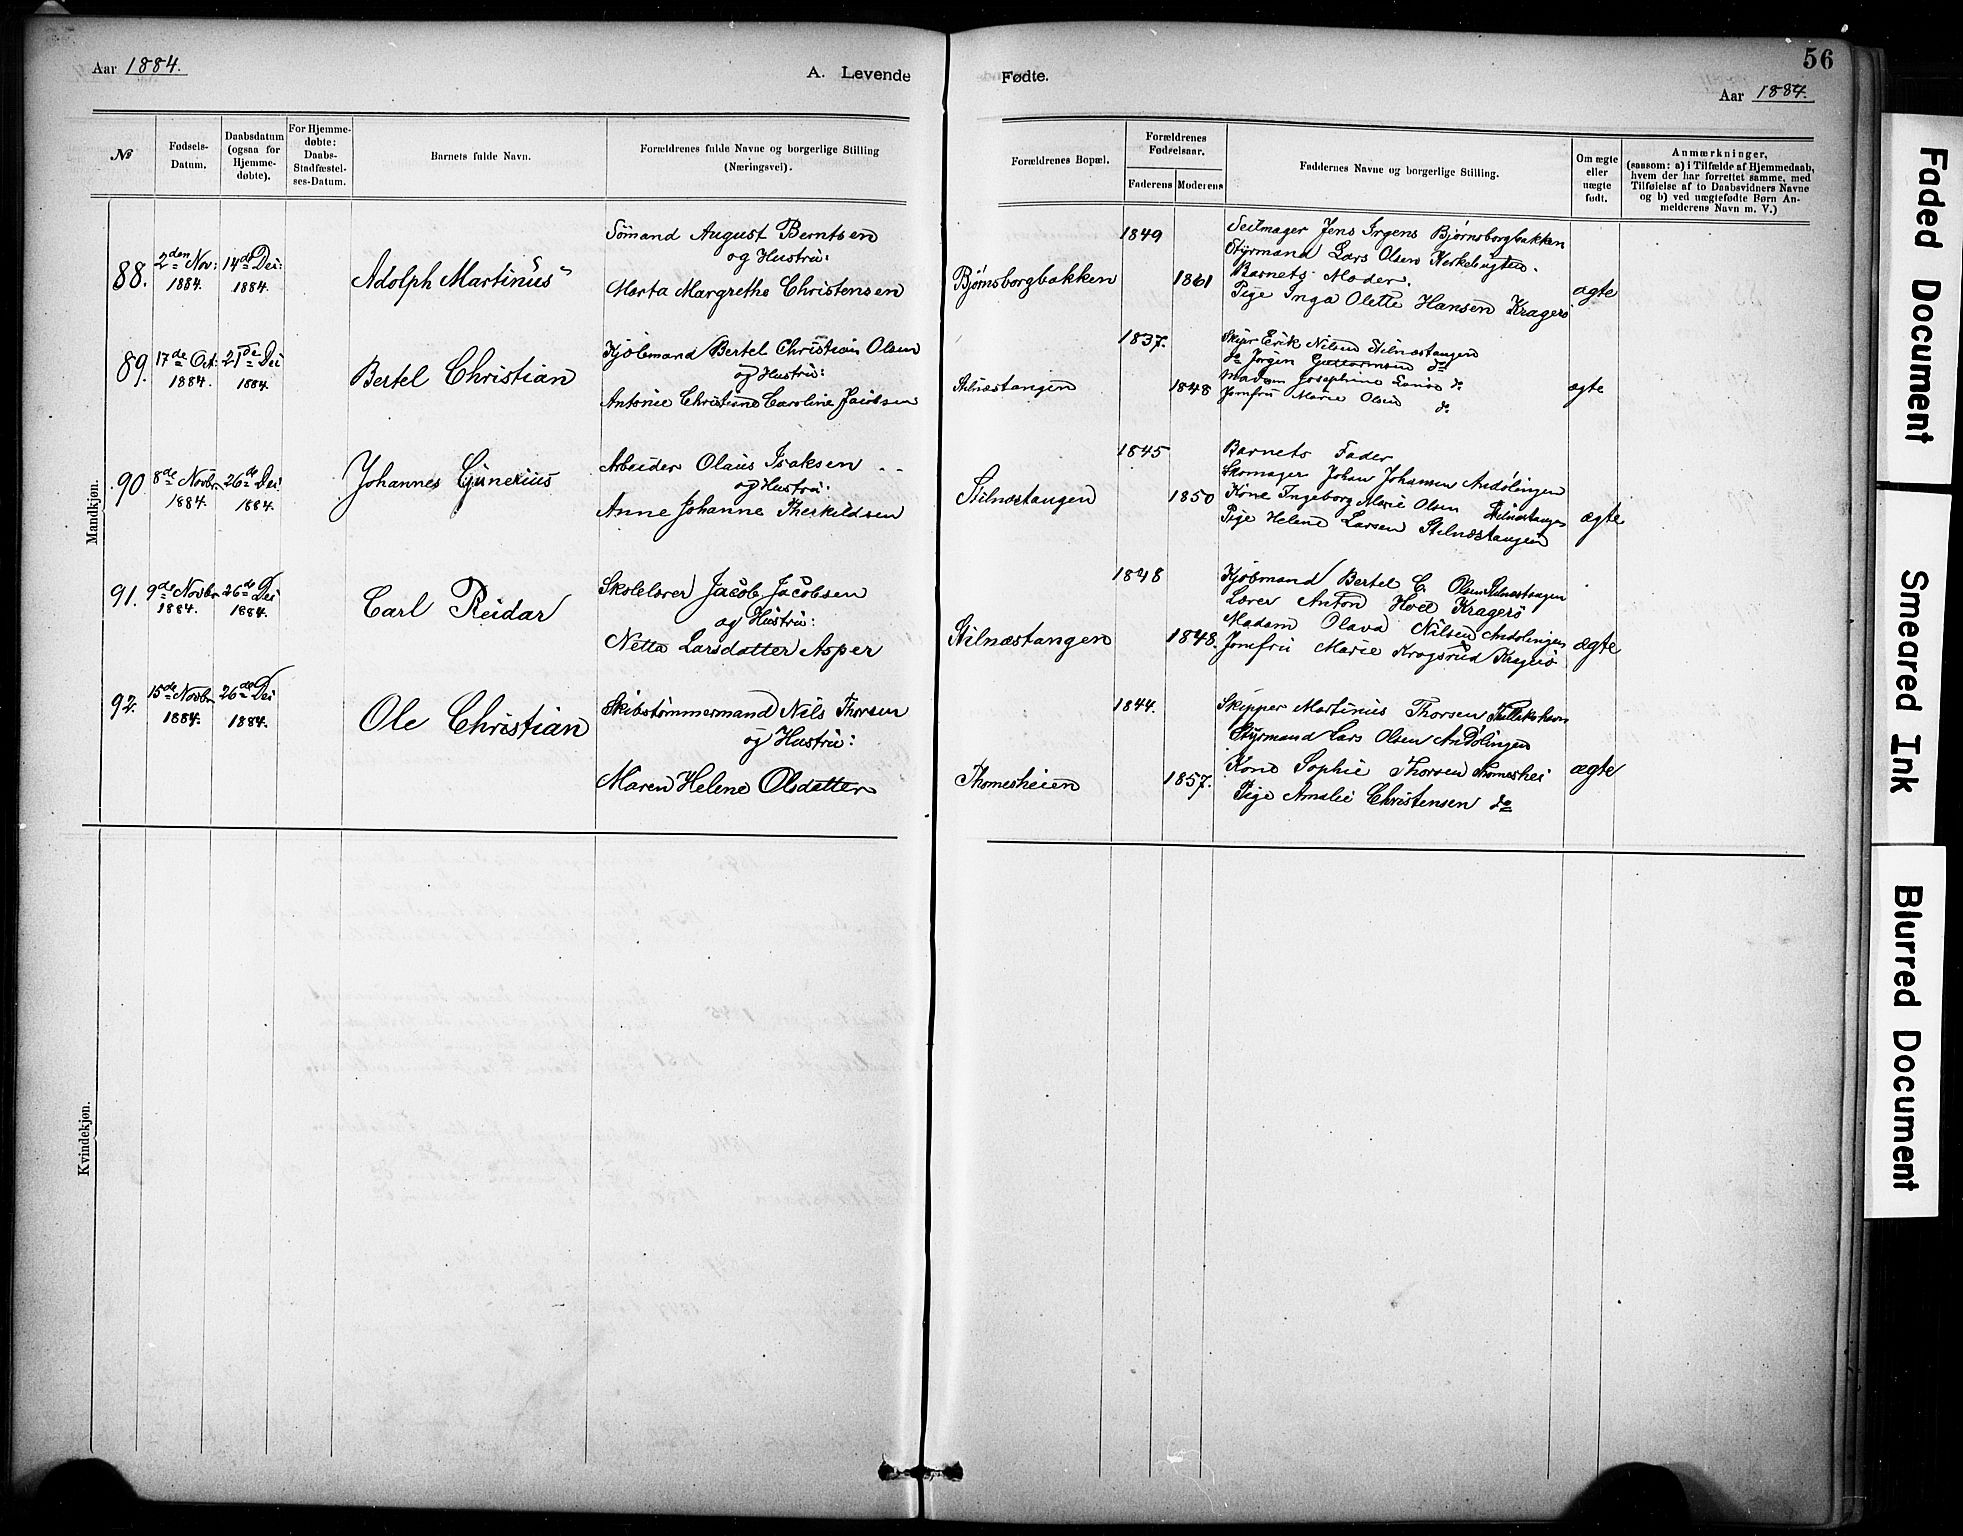 56
Aar 1884.
A. Levende Fødte.
Aar 1884.
№
Fødsels-Datum.
Daabsdatum (ogsaa for Hjemme-døbte).
For Hjemme-døbte: Daabs-Stadfæstel-ses-Datum.
Barnets fulde Navn.
Forældrenes fulde Navne og borgerlige Stilling (Næringsvei).
Forældrenes Bopæl.
Forældrenes Fødselsaar.
Faderens
Moderens
Faddernes Navne og borgerlige Stilling.
Om ægte eller uægte født.
Anmærkninger,
(saasom: a) i Tilfælde af Hjemmedaab,
hvem der har forrettet samme, med
Tilføielse af to Daabsvidners Navne
og b) ved uægtefødte Børn An-
melderens Navn m. V.)
Mandkjøn.
88.
2den Nov: 1884.
14de Dec: 1884.
Adolph Martinus
Sømand August Berntsen
og Hustru:
Marta Margrethe Christensen
Bjørnsborgbakken
1849
1861
Seilmager Jens Jrgens Bjørnsborgbakken
Styrmand Lars Olsen
Barnets Moder.
Pige Inga Olette Hansen Kragerø
ægte
89.
17de Oct: 1884.
21de Dec 1884.
Bertel Christian
Kjøbmand Bertel Christian Olsen
og Hustru:
Antonie Christiane Caroline Jacobsen
Stilnæstangen
1837.
1848
Skipr Erik Nilsen Stilnæstangen
do Jørgen Guttormsen do
Madam Josephine do
Jomfru Marie Olsen do
ægte
90
8de Novbr. 1884.
26de Dec 1884.
Johannes Gunerius
Arbeider Olaus Isaksen
og Hustru:
Anne Johanne Therkildsen
Stilnæstangen
1845
1850
Barnets Fader
Skomager Johan Johansen Andølingen
Kone Ingeborg Marie Olsen Stilnæstangen
Pige Helene Larsen Stilnæstangen
ægte
91.
9de Novbr. 1884.
26de Dec 1884.
Carl Reidar
Skolelærer Jacob Jacobsen
og Hustru:
Netta Larsdatter Asper
Stilnæstangen
1848
1848.
Kjøbmand Bertel C. Olsen Stilnæstangen
Lærer Anton Kragerø
Madam Olava Nilsen Andølingen
Jomfru Marie Krogsrud Kragerø
ægte
92.
15de Novbr. 1884.
26de Dec 1884.
Ole Christian
Skibstømmermand Nils Thorsen
og Hustru:
Maren Helene Olsdatter
Thomesheien
1844.
1857.
Skipper Martinius Thorsen
Styrmand Lars Olsen Andølingen
Kone Sophie Thorsen Thomeshei
Pige Amalie Christensen do
ægte
Kvindekjøn.
Faded Document
Smeared Ink
Blurred Document